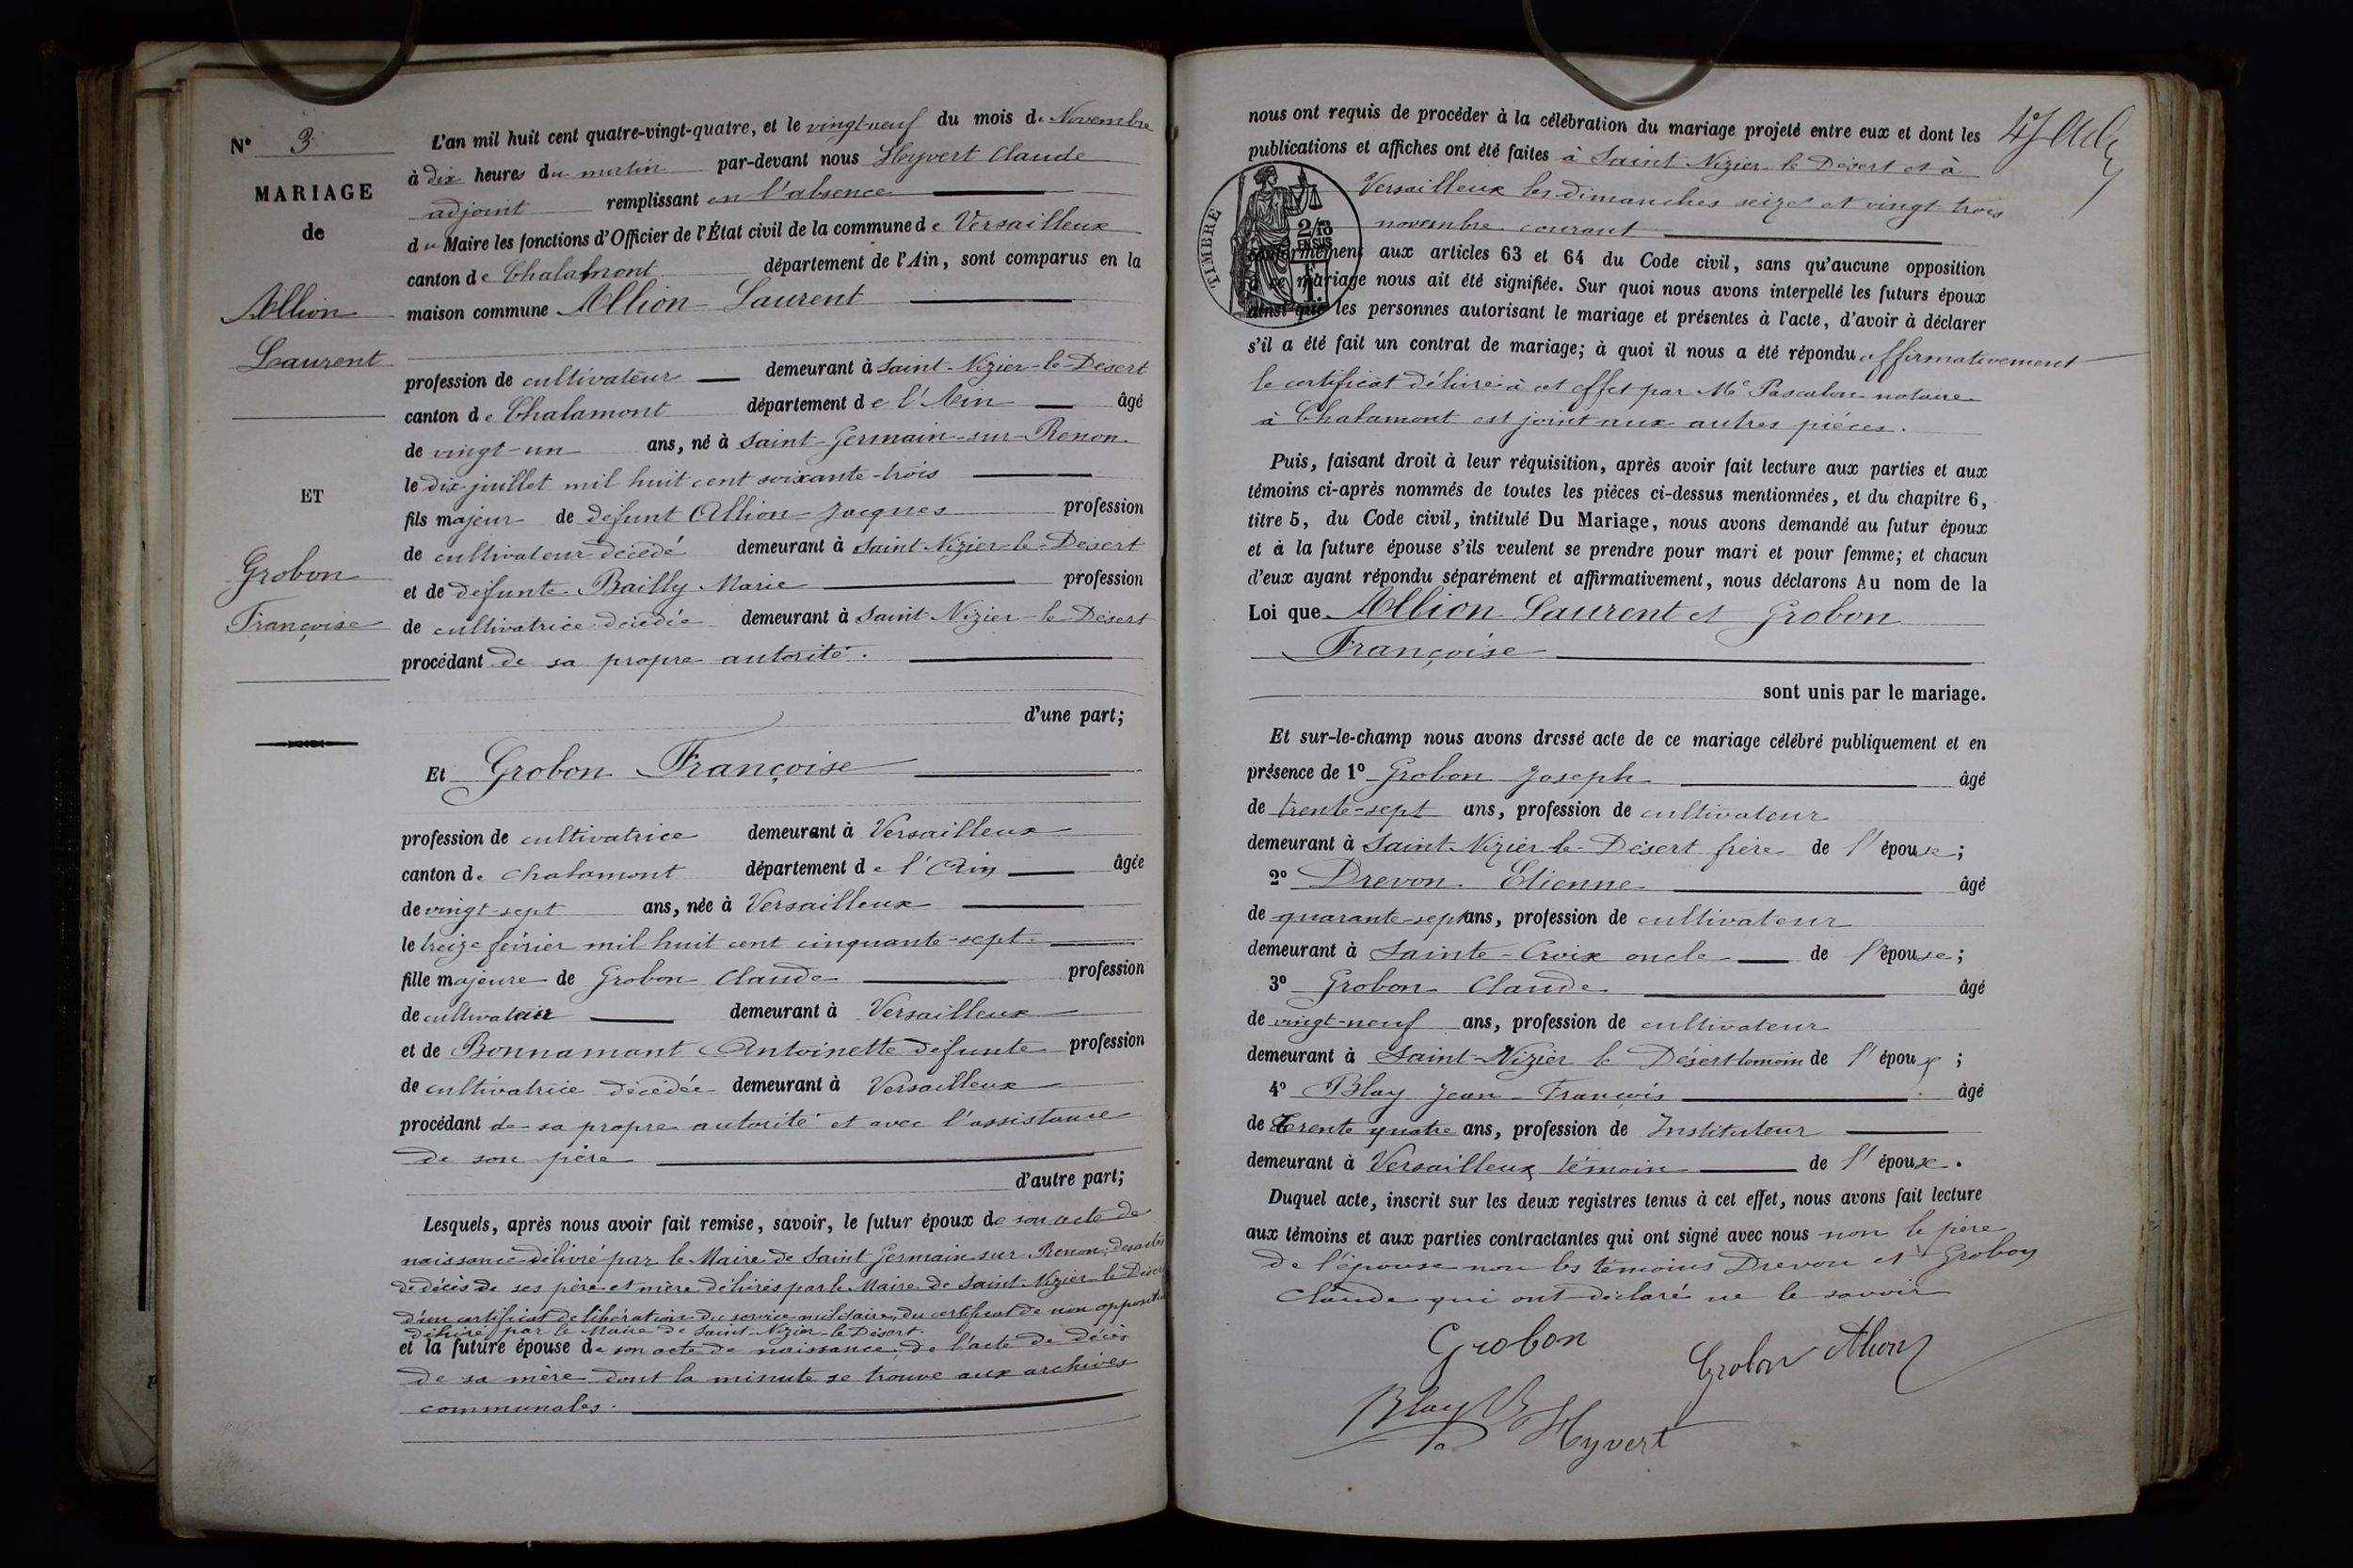 N° 3
MARIAGE
de
Allion
Laurent
ET
Grobon
Françoise
L'an mil huit cent quatre-vingt-quatre, et le vingt-neuf du mois de Novembre
à dix heures du matin par-devant nous Heyvert Claude
adjoint remplissant en l'absence
du Maire les fonctions d'Officier de l'État civil de la commune de Versailleux
canton de Chalamont département de l'Ain, sont comparus en la
maison commune Allion Laurent
profession de cultivateur demeurant à Saint-Nizier-le-Désert
canton de Chalamont département de l'Ain âgé
de vingt-un ans, né à Saint-Germain-sur-Renon
le dix juillet mil huit cent soixante-trois
fils majeur de défunt Allion Jacques profession
de cultivateur décédé demeurant à Saint-Nizier-le-Désert
et de défunte Bailly Marie profession
de cultivatrice décédée demeurant à Saint-Nizier-le-Désert
procédant de sa propre autorité.
d'une part;
Et Grobon Françoise
profession de cultivatrice demeurant à Versailleux
canton de Chalamont département de l'Ain âgée
de vingt-sept ans, née à Versailleux
le treize février mil huit cent cinquante-sept.
fille majeure de Grobon Claude profession
de cultivateur demeurant à Versailleux
et de Bonnamant Antoinette défunte profession
de cultivatrice décédée demeurant à Versailleux
procédant de sa propre autorité et avec l'assistance
de son père
d'autre part;
Lesquels, après nous avoir fait remise, savoir, le futur époux de son acte de
naissance délivré par le Maire de Saint Germain sur Renon, des actes
de décès de ses père et mère délivrés par le Maire de Saint-Nizier-le-Désert
d'un certificat de libération du service militaire, du certificat de non opposition
délivré par le Maire de Saint-Nizier-le-Désert.
et la future épouse de son acte de naissance, de l'acte de décès
de sa mère dont la minute se trouve aux archives
communales.
nous ont requis de procéder à la célébration du mariage projeté entre eux et dont les
publications et affiches ont été faites à Saint Nizier le Désert et à
Versailleux les dimanches seize et vingt-trois
novembre courant
TIMBRE
2/10
EN SUS
conformément aux articles 63 et 64 du Code civil, sans qu'aucune opposition
à ce mariage nous ait été signifiée. Sur quoi nous avons interpellé les futurs époux
ainsi que les personnes autorisant le mariage et présentes à l'acte, d'avoir à déclarer
s'il a été fait un contrat de mariage; à quoi il nous a été répondu affirmativement
le certificat délivré à cet effet par Me Pascalon notaire
à Chalamont est joint aux autres pièces.
Puis, faisant droit à leur réquisition, après avoir fait lecture aux parties et aux
témoins ci-après nommés de toutes les pièces ci-dessus mentionnées, et du chapitre 6,
titre 5, du Code civil, intitulé Du Mariage, nous avons demandé au futur époux
et à la future épouse s'ils veulent se prendre pour mari et pour femme; et chacun
d'eux ayant répondu séparément et affirmativement, nous déclarons Au nom de la
Loi que Allion Laurent et Grobon
Françoise
sont unis par le mariage.
Et sur-le-champ nous avons dressé acte de ce mariage célébré publiquement et en
présence de 1° Grobon Joseph âgé
de trente-sept ans, profession de cultivateur
demeurant à Saint-Nizier-le-Désert frère de l'épouse;
2° Drevon Etienne âgé
de quarante-sept ans, profession de cultivateur
demeurant à Sainte-Croix oncle de l'épouse;
3° Grobon Claude âgé
de vingt-neuf ans, profession de cultivateur
demeurant à Saint-Nizier le Désert temoin de l'époux;
4° Blay Jean-François âgé
de trente quatre ans, profession de Instituteur
demeurant à Versailleux témoin de l'épouse.
Duquel acte, inscrit sur les deux registres tenus à cet effet, nous avons fait lecture
aux témoins et aux parties contractantes qui ont signé avec nous non le père
de l'épouse non les témoins Drevon et Grobon
Claude qui ont déclaré ne le savoir
Grobon
Grobon Alion
Blay
Hyvert